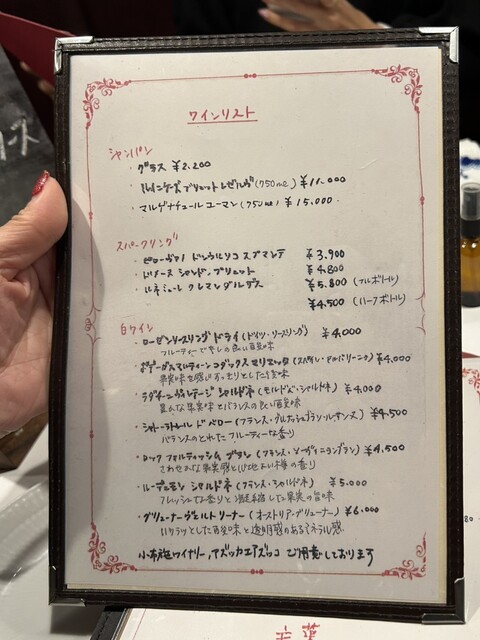 ワインリスト
シャンパン
・グラス ¥2.200
ブリュット レゼルヴ(750ml) ¥11.000
・マルゲナチュールユーマン(750ml) ¥15.000
スパークリング
・ピローヴァノ ドンウルリコ スプマンテ ¥3.900
・ドメーヌ シャンドン ブリュット ¥4.800
・ルネミューレ クレマンダルザス ¥5.800 (フルボトル)
¥4.500 (ハーフボトル)
白ワイン
・ローゼンリースリング ドライ(ドイツ・リースリング) ¥4,000
フルーティーで
・ボデーガスマルティーンコダックス マリエッタ(スペイン・アルバリーニョ) ¥4,000
果実味を感じすっきりとした
・ラダチーニヴィンテージ シャルドネ(モルドバ・シャルドネ) ¥4,000
豊かな果実味とバランスの良い酸味
・シャトー ドー(フランス・グルナッシュブラン・ルーサンヌ) ¥4,500
バランスのとれたフルーティーな香り
・ロック ブラン(フランス・ソーヴィニヨンブラン) ¥4,500
さわやかな果実感と心地よい樽の香り
・ルーデュモン シャルドネ(フランス・シャルドネ) ¥5.000
フレッシュな香りと凝縮した果実の旨味
・グリューナーヴェルトリーナー(オーストリア・グリューナー) ¥6.000
いきいきとした酸味と透明感のあるミネラル感
小布施ワイナリー、アズッカエアズッコ ご用意しております